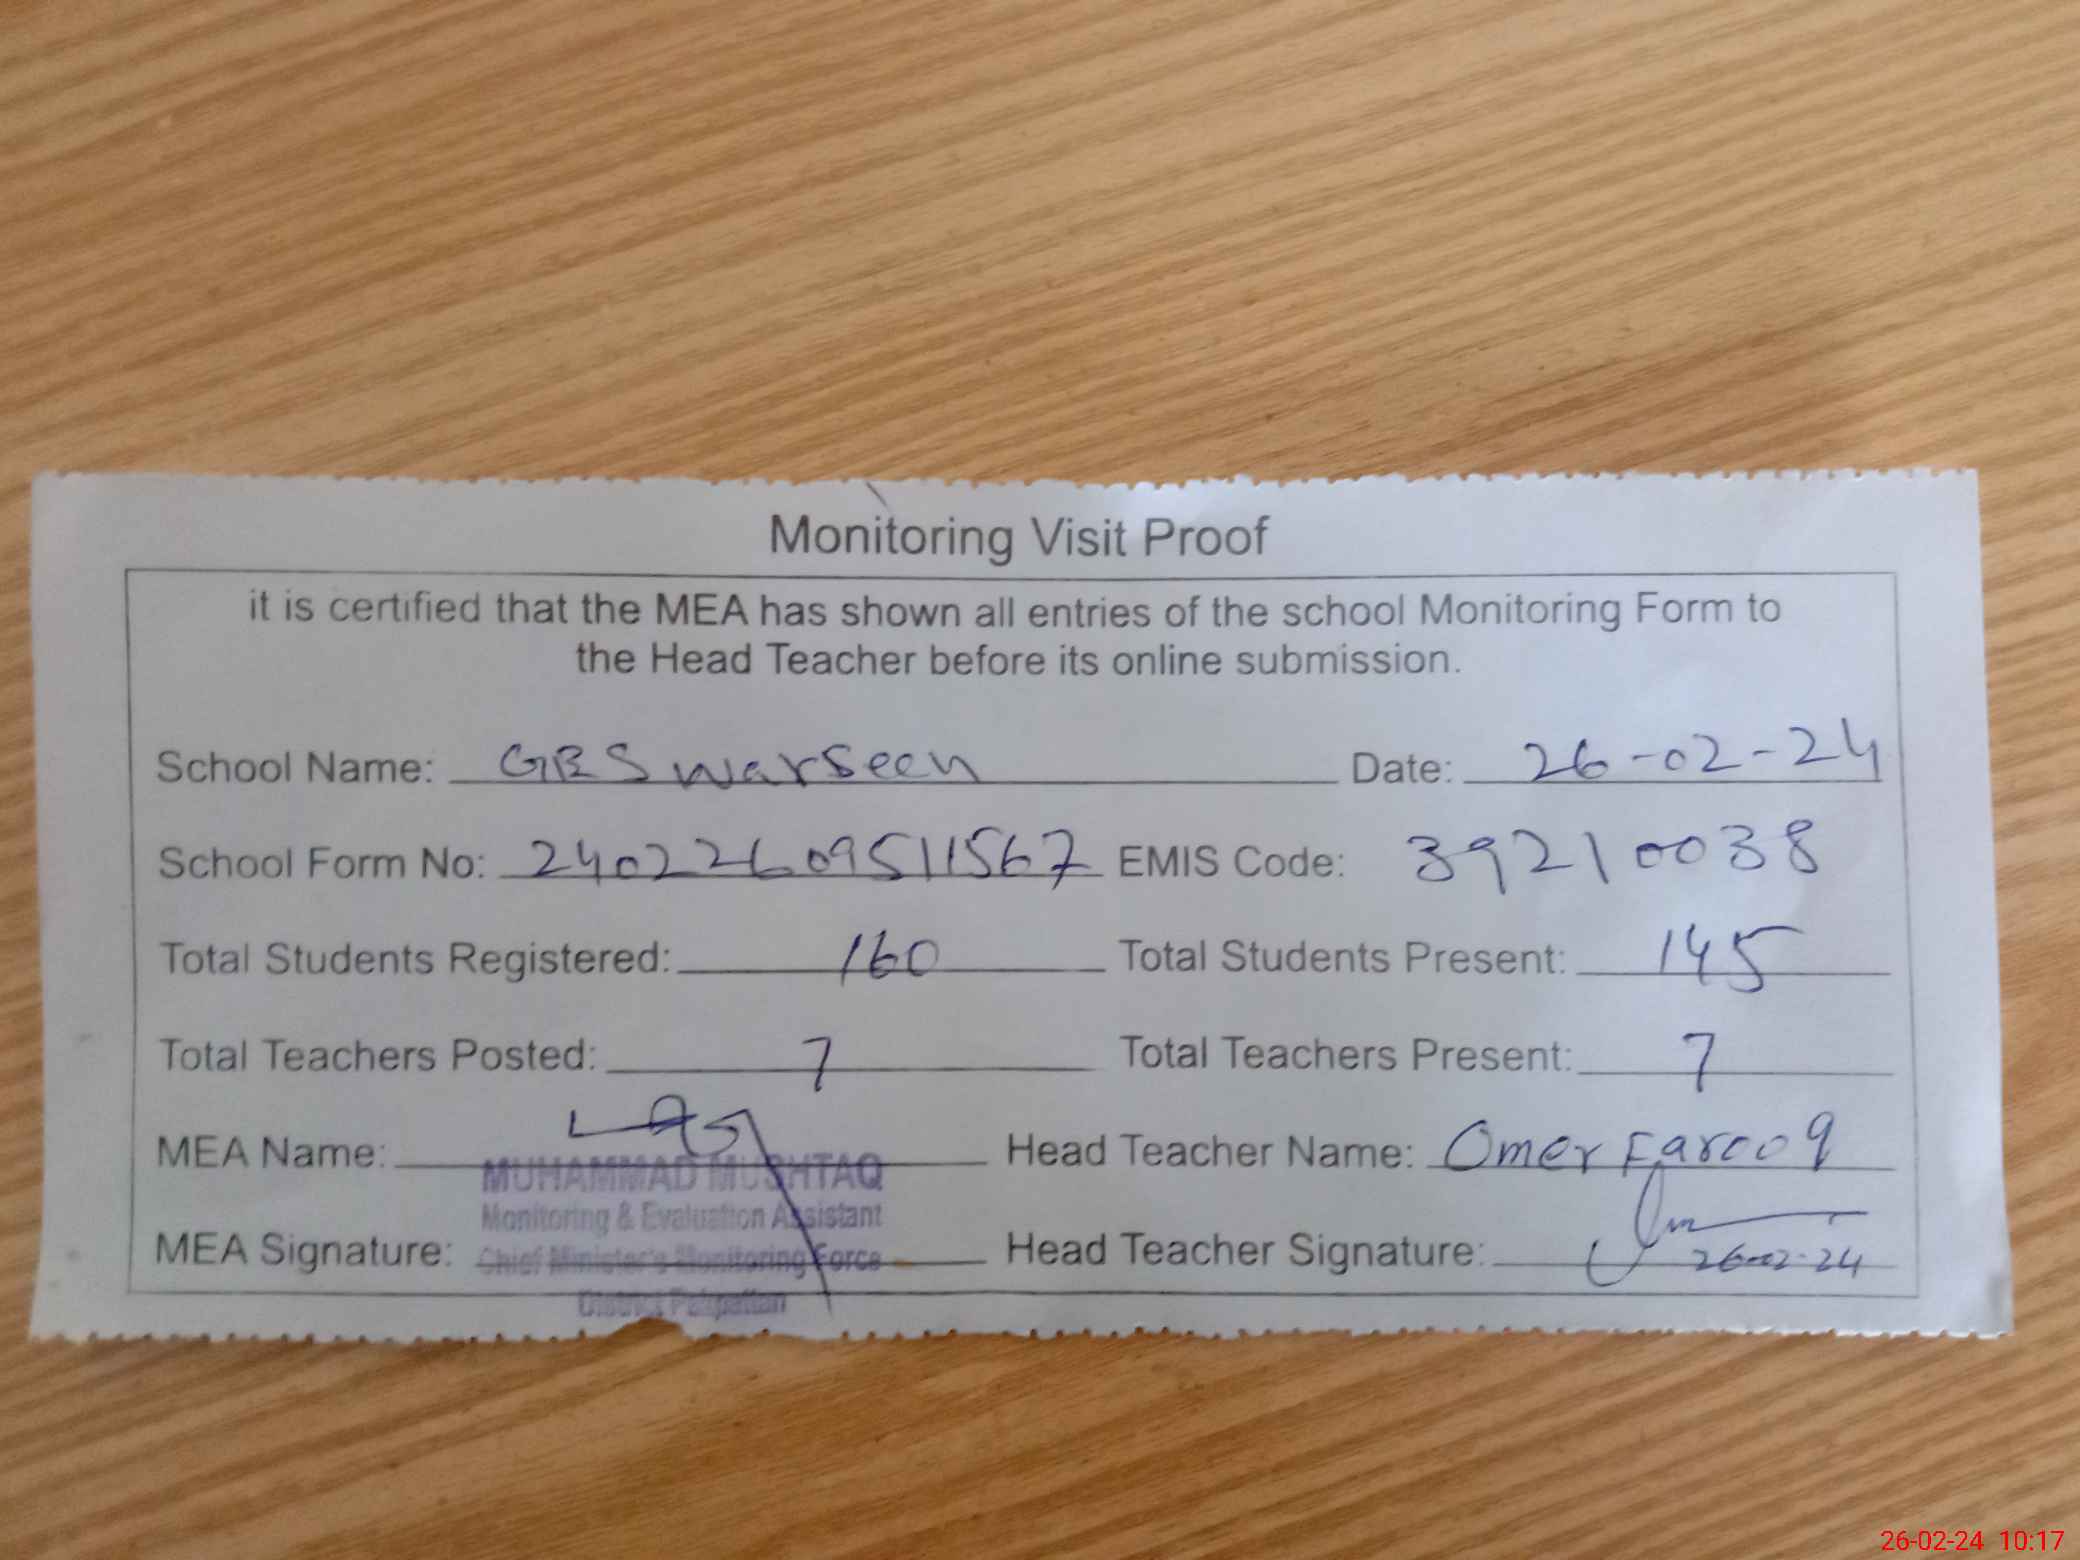 Monitoring Visit Proof
it is certified that the MEA has shown all entries of the school Monitoring Form to
the Head Teacher before its online submission.
School Name: GES warseen Date: 26-02-24
School Form No: 24022609511567 EMIS Code: 39210038
Total Students Registered: 160 Total Students Present: 145
Total Teachers Posted: 7 Total Teachers Present: 7
MEA Name: Head Teacher Name: Omer Farooq
MUHAMMAD MUSHTAQ
Monitoring & Evaluation Assistant
MEA Signature: Head Teacher Signature: 26-02-24
Chief Minister's Monitoring Force
District Pakpattan
26-02-24 10:17